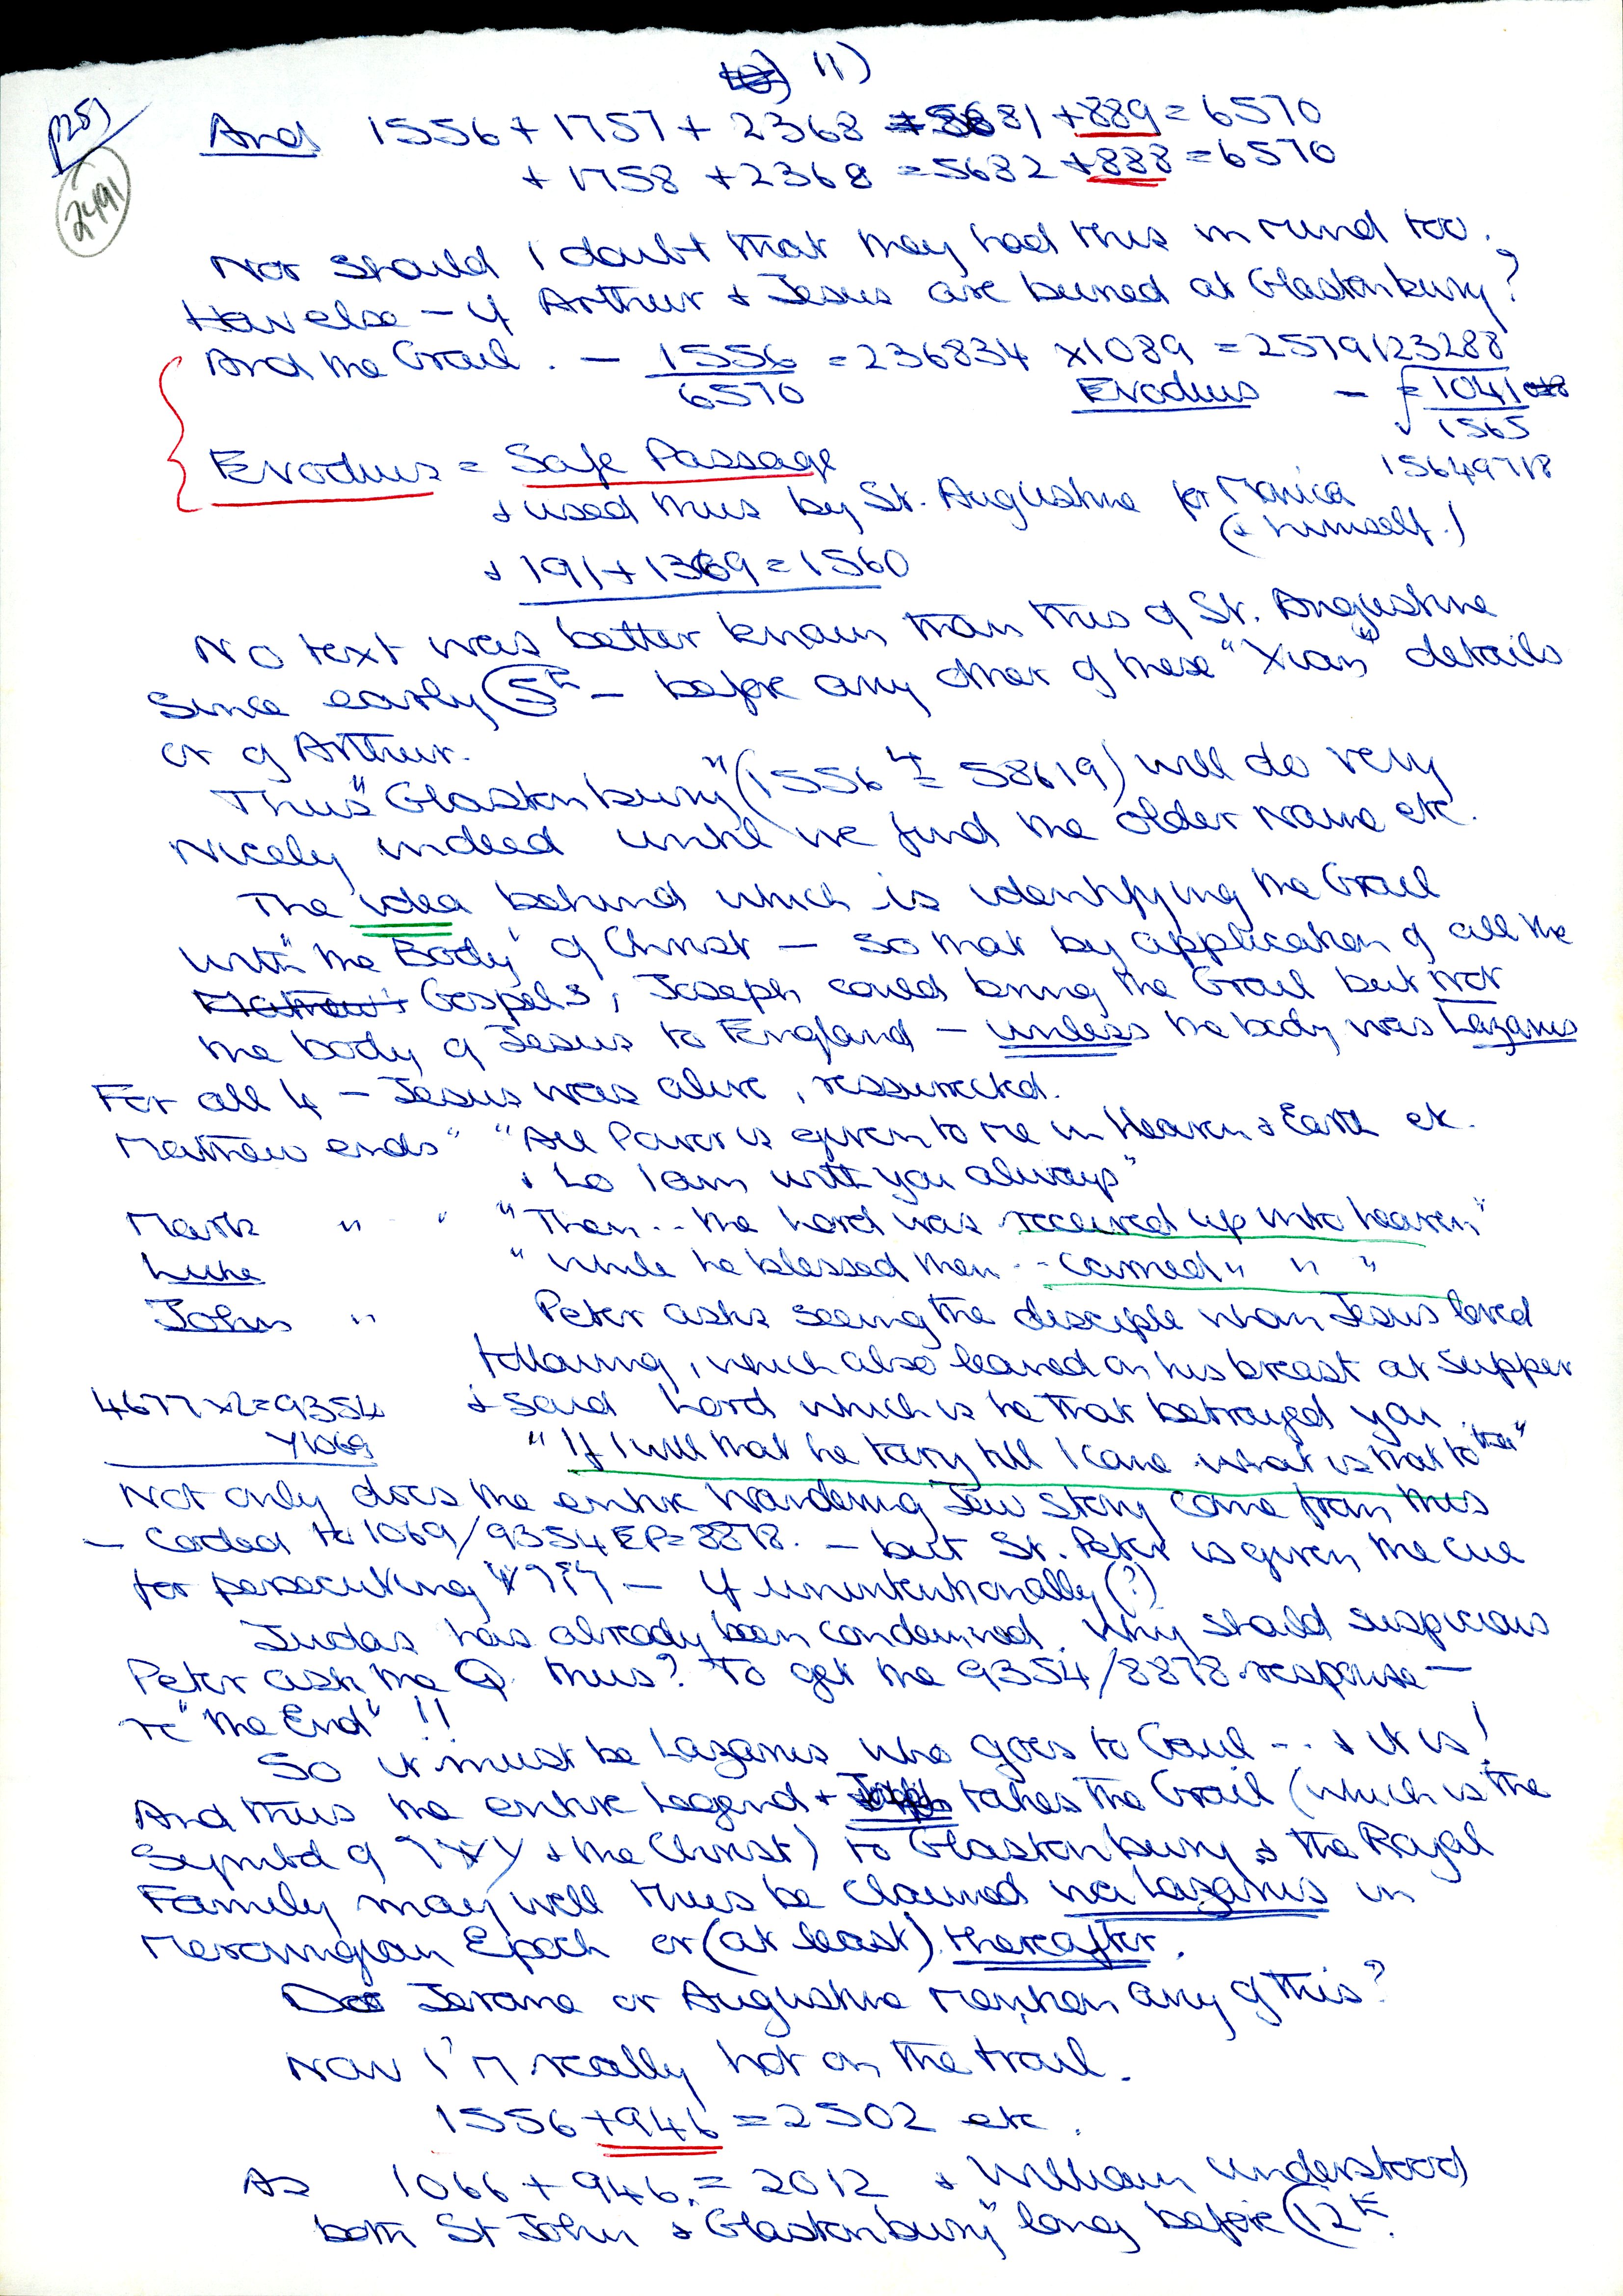 11)
2491
And 1556 + 1757 + 2368 = 5681 + 889 = 6570
+ 1758 + 2368 = 5682 + 888 = 6570
Nor should I doubt that they had this in mind too.
How else – if Arthur & Jesus are buried at Glastonbury?
And the Grail. – 1556/6570 = 236834 x 1089 = 2579123288
Evodius – √ = 1041/1565
15649718
Evodius = Safe Passage
& used thus by St. Augustine for Monica
(& himself.)
& 191 + 1369 = 1560
No text was better known than this of St. Augustine
since early (5th – before any other of these "Xian" details
or of Arthur.
Thus "Glastonbury" (1556 4 = 58619) will do very
nicely indeed until we find the older name etc.
The idea behind which is identifying the Grail
with "the Body" of Christ – so that by application of all the
Gospels, Joseph could bring the Grail but not
the body of Jesus to England – unless the body was Lazarus
For all 4 – Jesus was alive, ressurrected.
Matthew ends " "All Power is given to me in Heaven & Earth etc.
& Lo I am with you always"
Mark " " "Then .. the Lord was received up into heaven"
Luke "While he blessed them .. carried " " "
John " Peter asks seeing the disciple whom Jesus loved
following, which also leaned on his breast at supper
4677 x 2 = 9354 & said Lord which is he that betrayed you
1069 "If I will that he tarry till I come what is that to thee"
Not only does the entire Wandering Jew story come from this
– Coded to 1069/9354 EP = 8878. – but St. Peter is given the cue
for persecuting – if unintentionally (?)
Judas has already been condemned. Why should suspicious
Peter ask the Q. thus? To get the 9354/8878 response –
re "the End" !!
So it must be Lazarus who goes to Gaul ... & it is!
And thus the entire Legend & takes the Grail (which is the
Symbol of & the Christ) to Glastonbury & the Royal
Family may well thus be claimed via Lazarus in
Merovingian Epoch or (at least) thereafter.
Does Jerome or Augustine mention any of this?
Now I'm really hot on the trail.
1556 + 946 = 2502 etc.
As 1066 + 946. = 2012 & William understood
both St John & "Glastonbury" long before (12th.